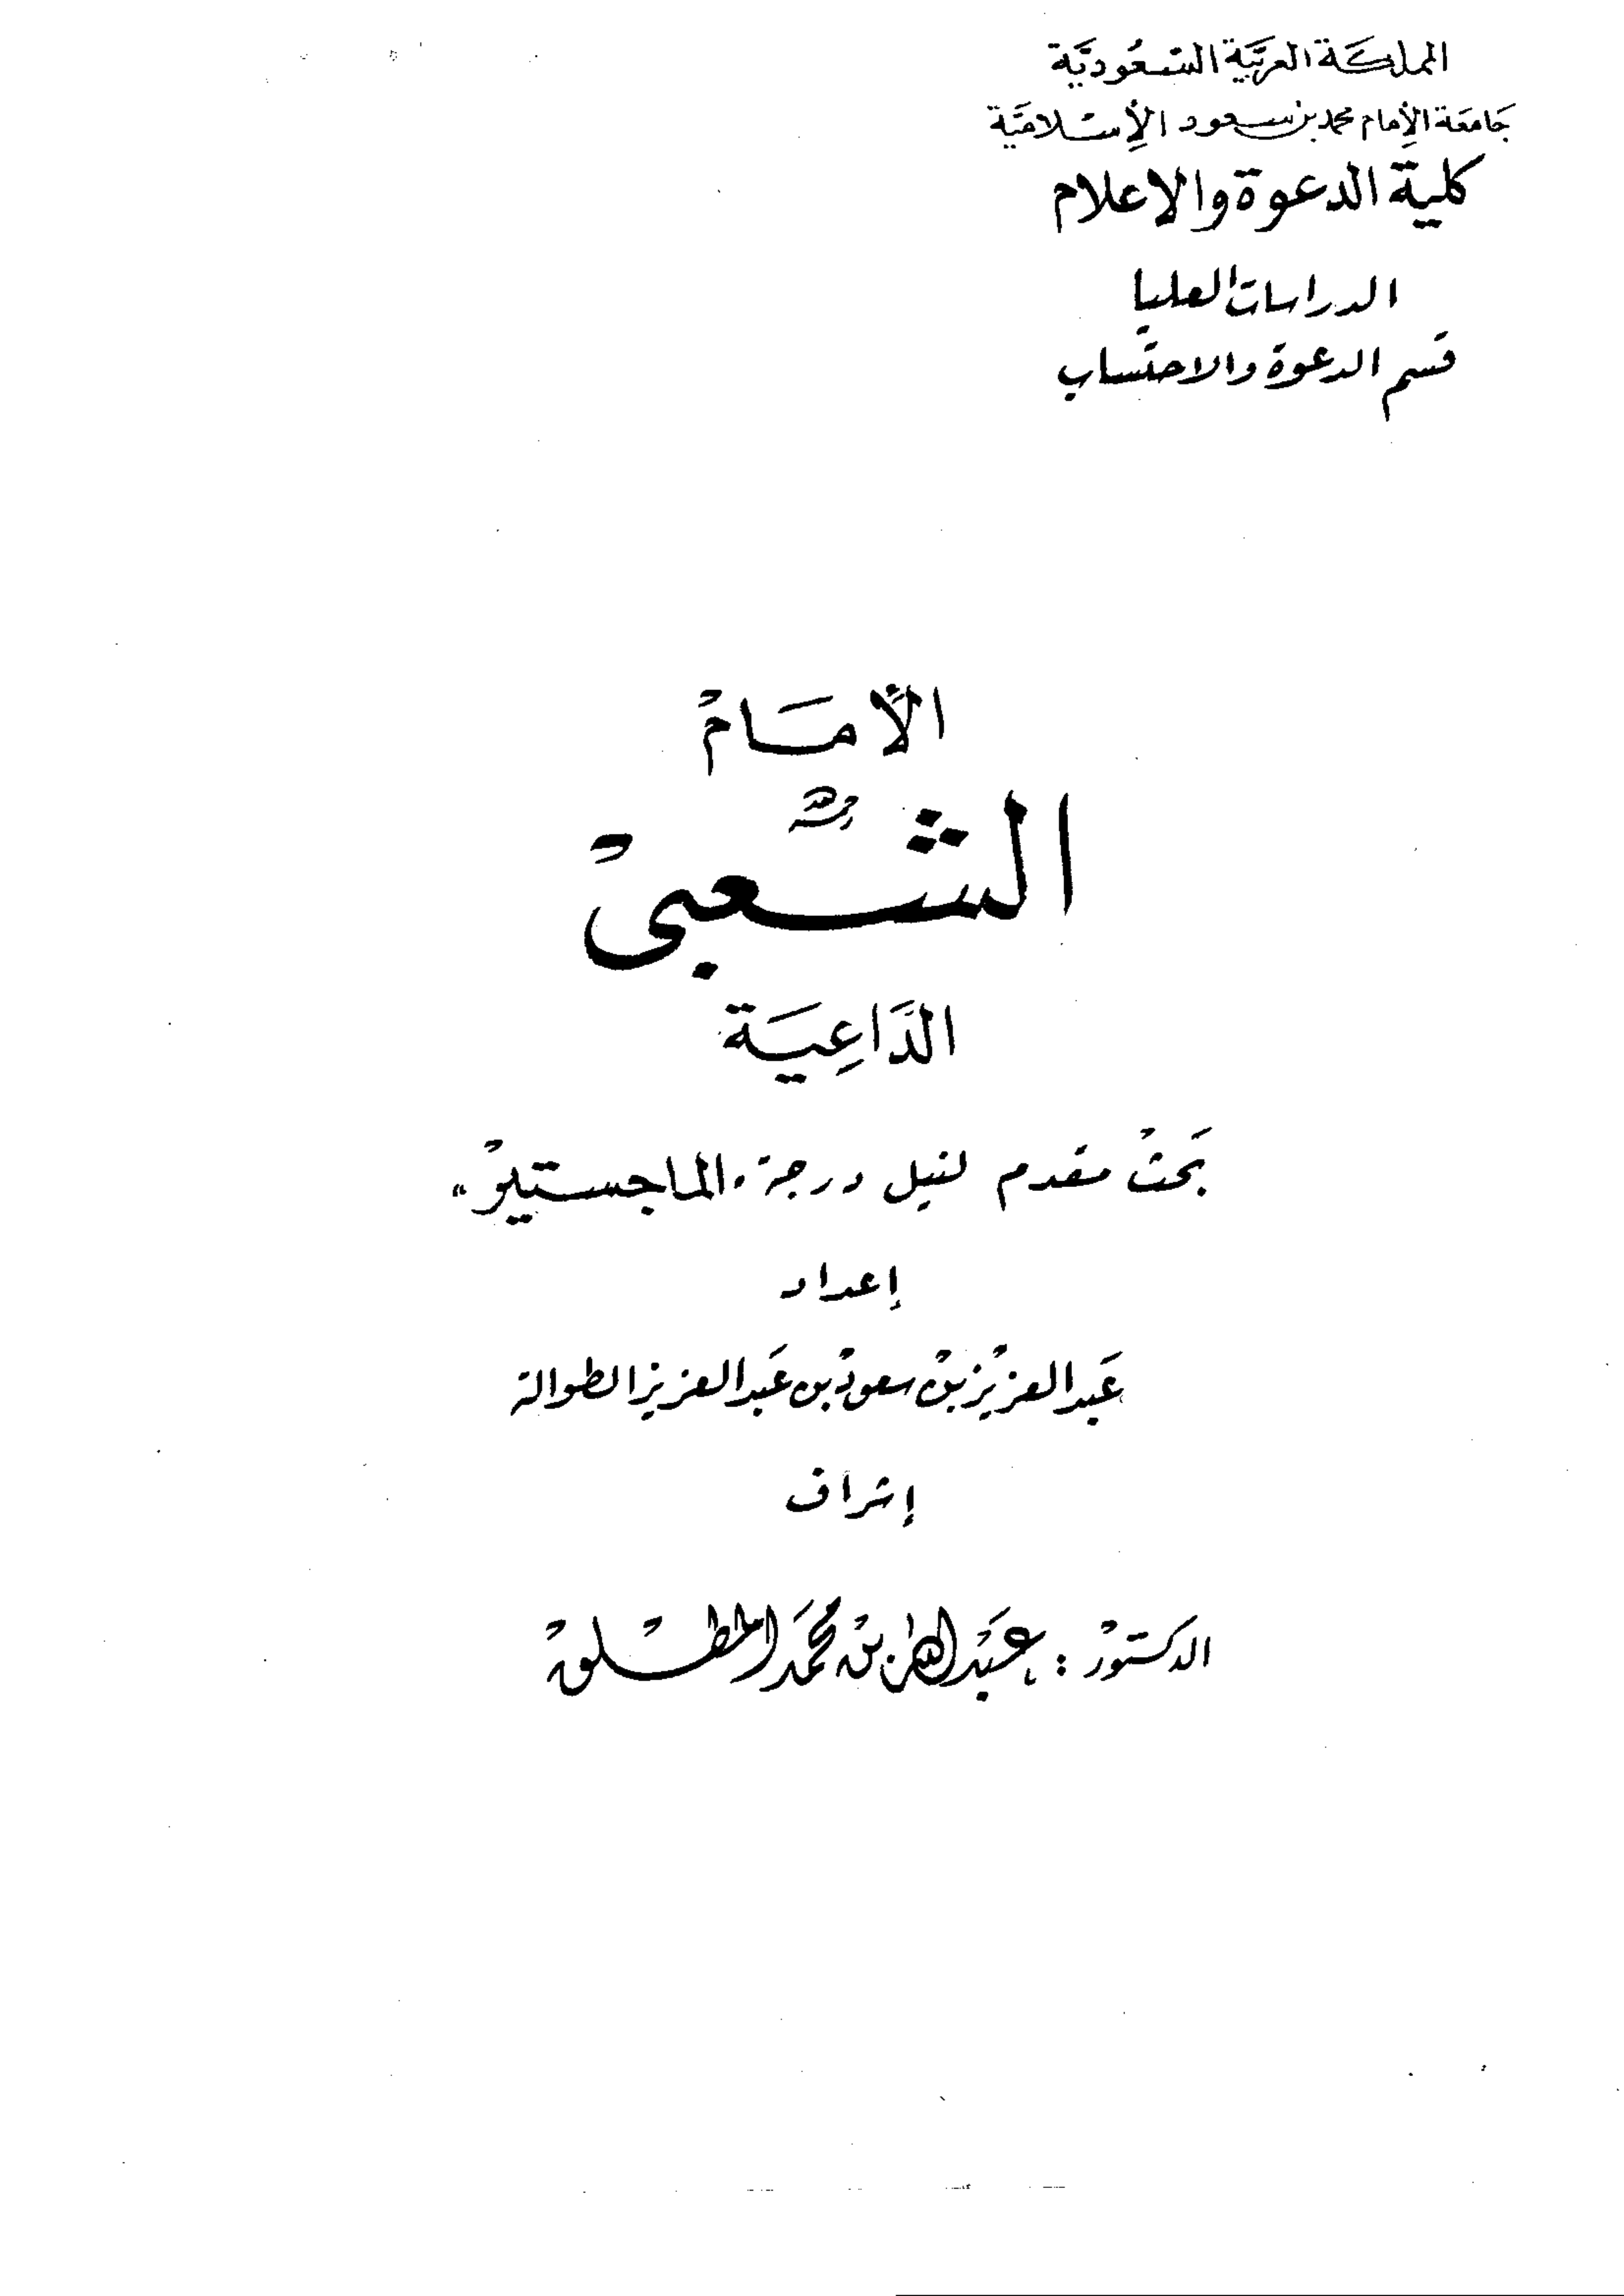 المملكة العربية السعودية
جامعة الإمام محمد بن سعود الإسلامية
كلية الدعوة والاعلام
الدراسات العليا
قسم الدعوة والاحتساب
الأمام
الشعبي
رحمه الله
الداعية
بحث مقدم لنيل درجة "الماجستير"
إعداد
عبد العزيز بن سعود بن عبد العزيز الطوالة
إشراف
الدكتور : عبد الله بن محمد المطلق